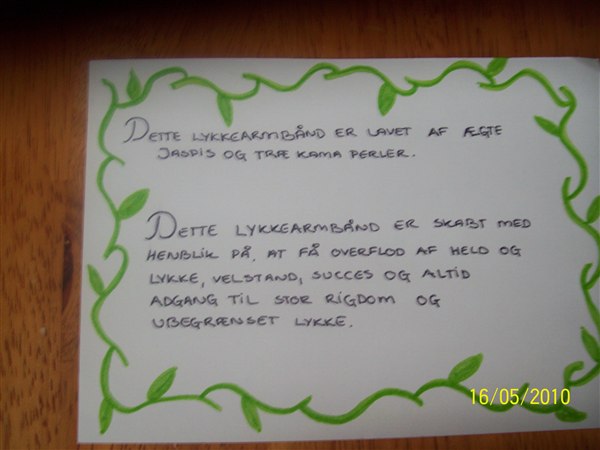 DETTE LYKKEARMBÅND ER LAVET AF ÆGTE
JASPIS OG TRÆ KAMA PERLER.
DETTE LYKKEARMBÅND ER SKABT MED
HENBLIK PÅ, AT FÅ OVERFLOD AF HELD OG
LYKKE, VELSTAND, SUCCES OG ALTID
ADGANG TIL STOR RIGDOM OG
UBEGRÆNSET LYKKE.
16/05/2010